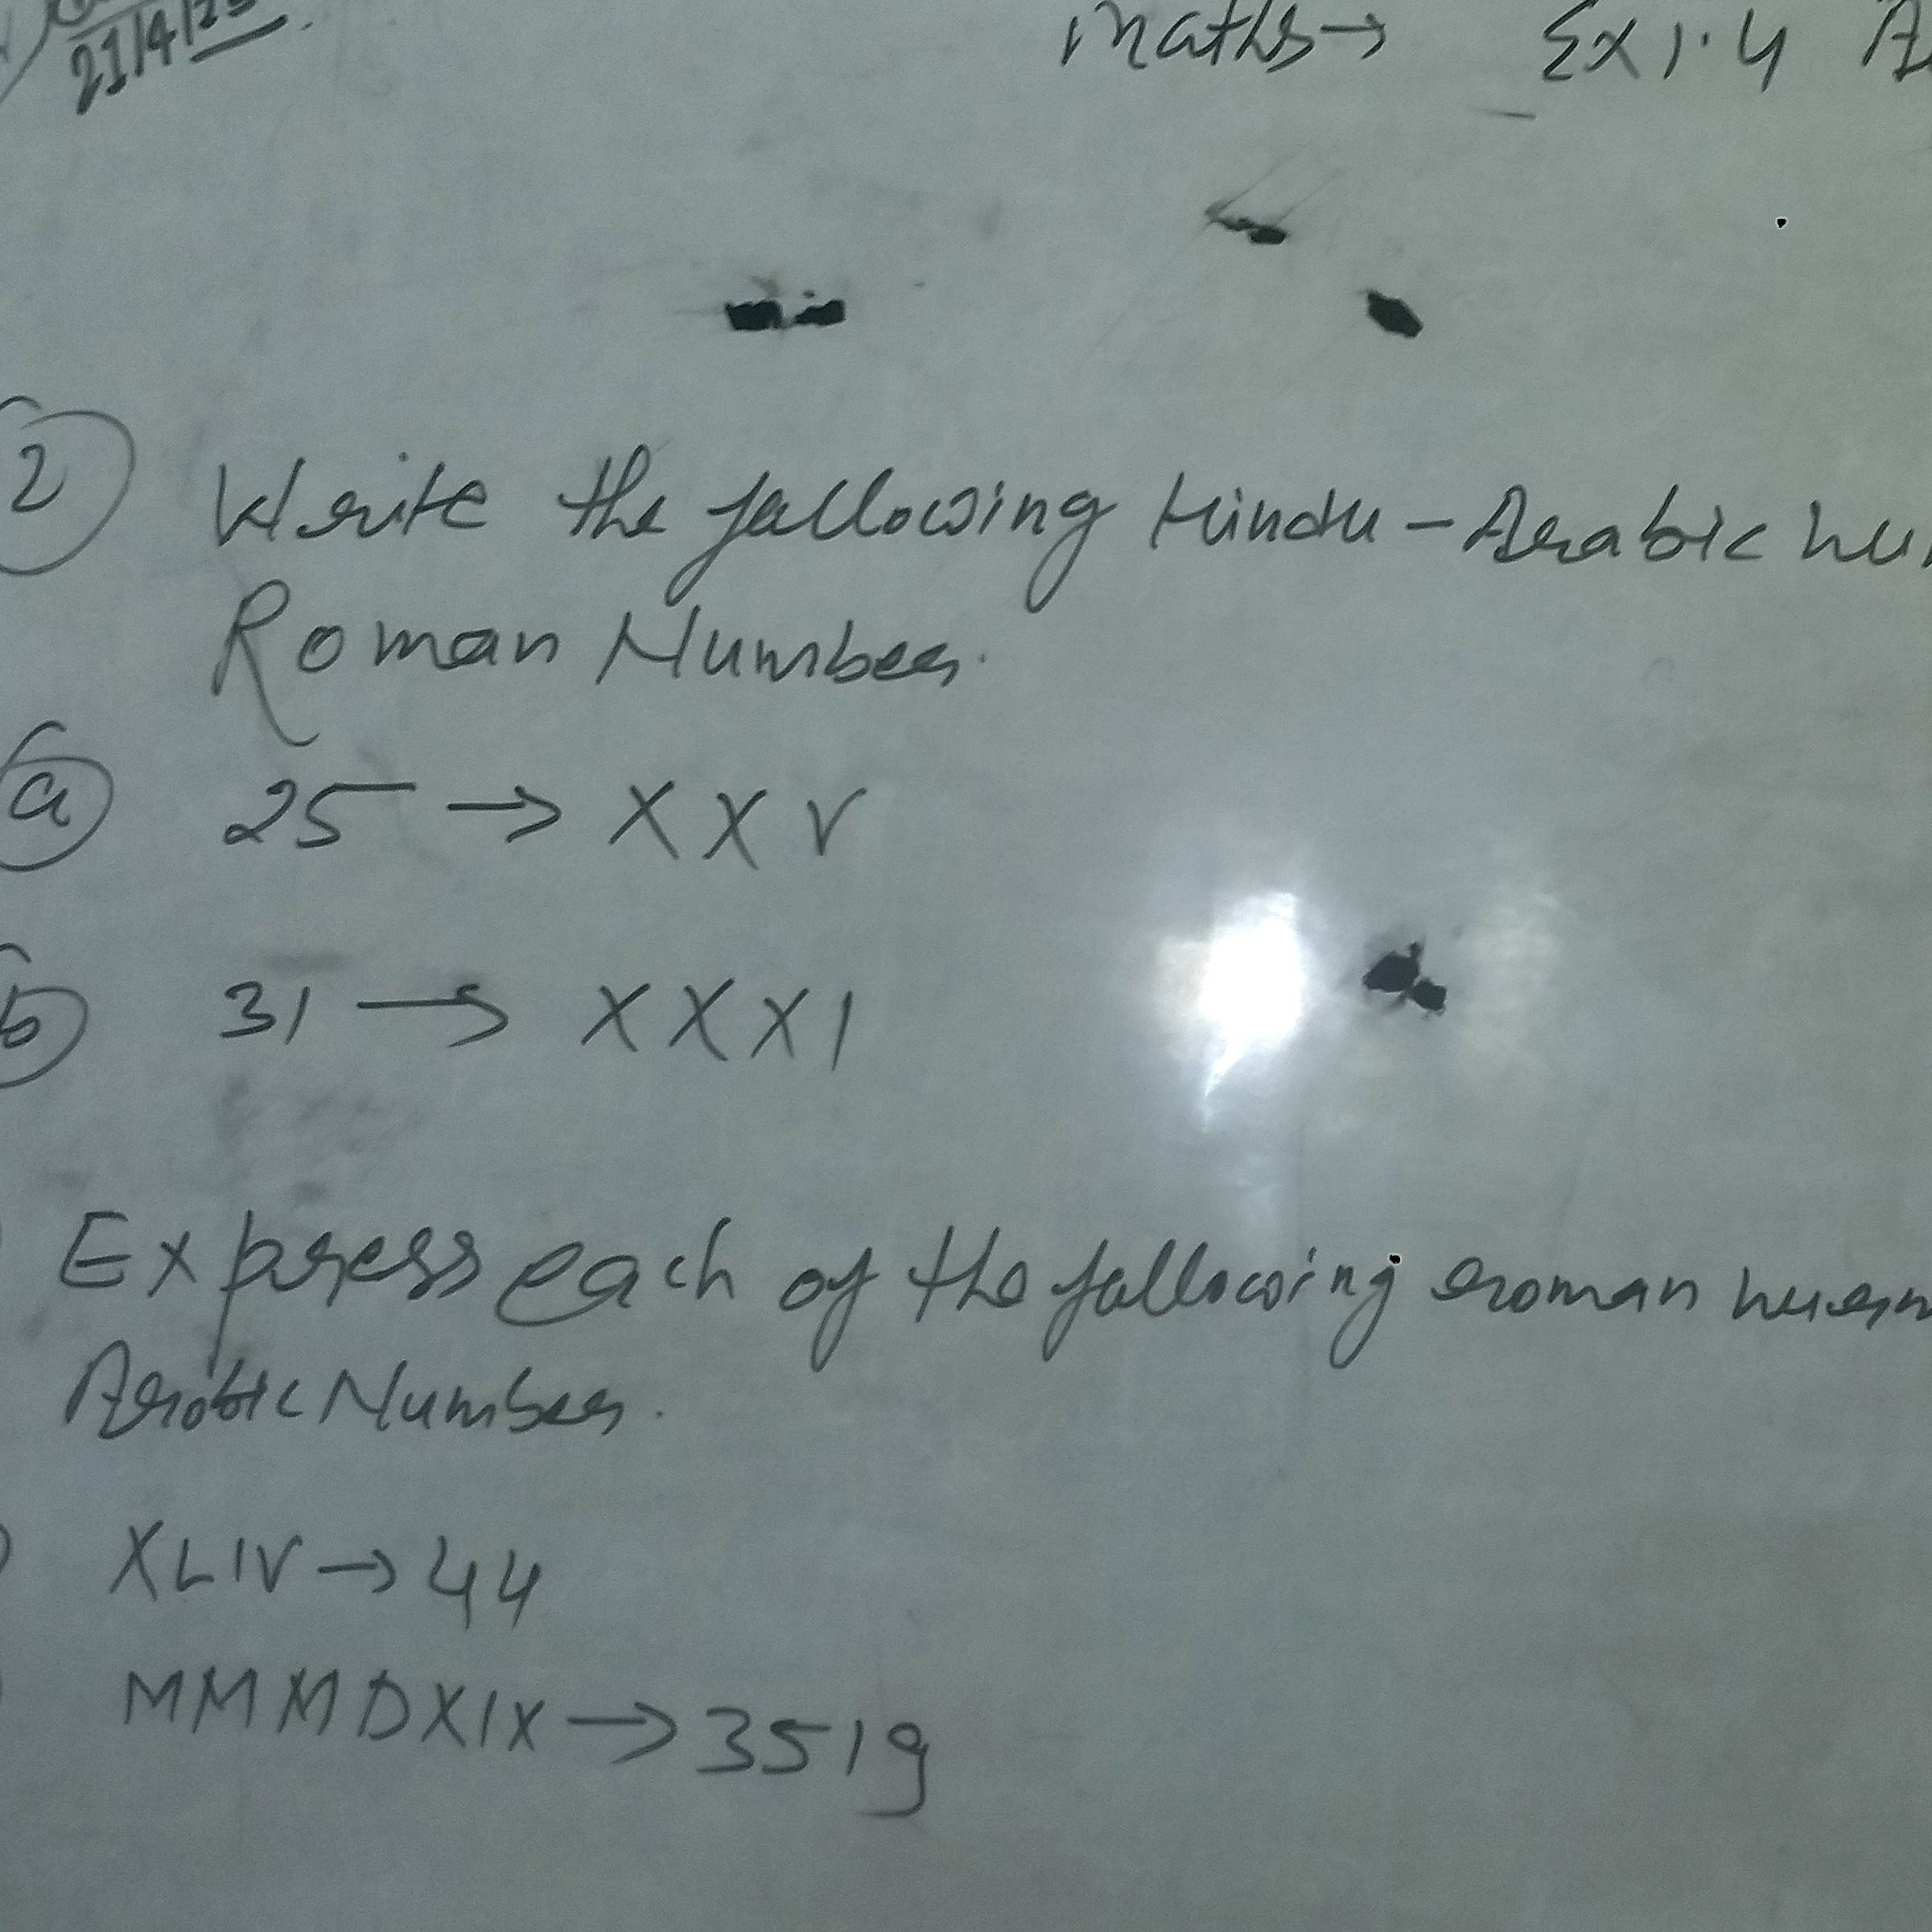 21/4/25
Maths → Ex 1.4
2 Write the following Hindu-Arabic
Roman Number.
a 25 → XXV
b 31 → XXXI
Express each of the following roman
Arabic Number.
XLIV → 44
MMMDXIX → 3519